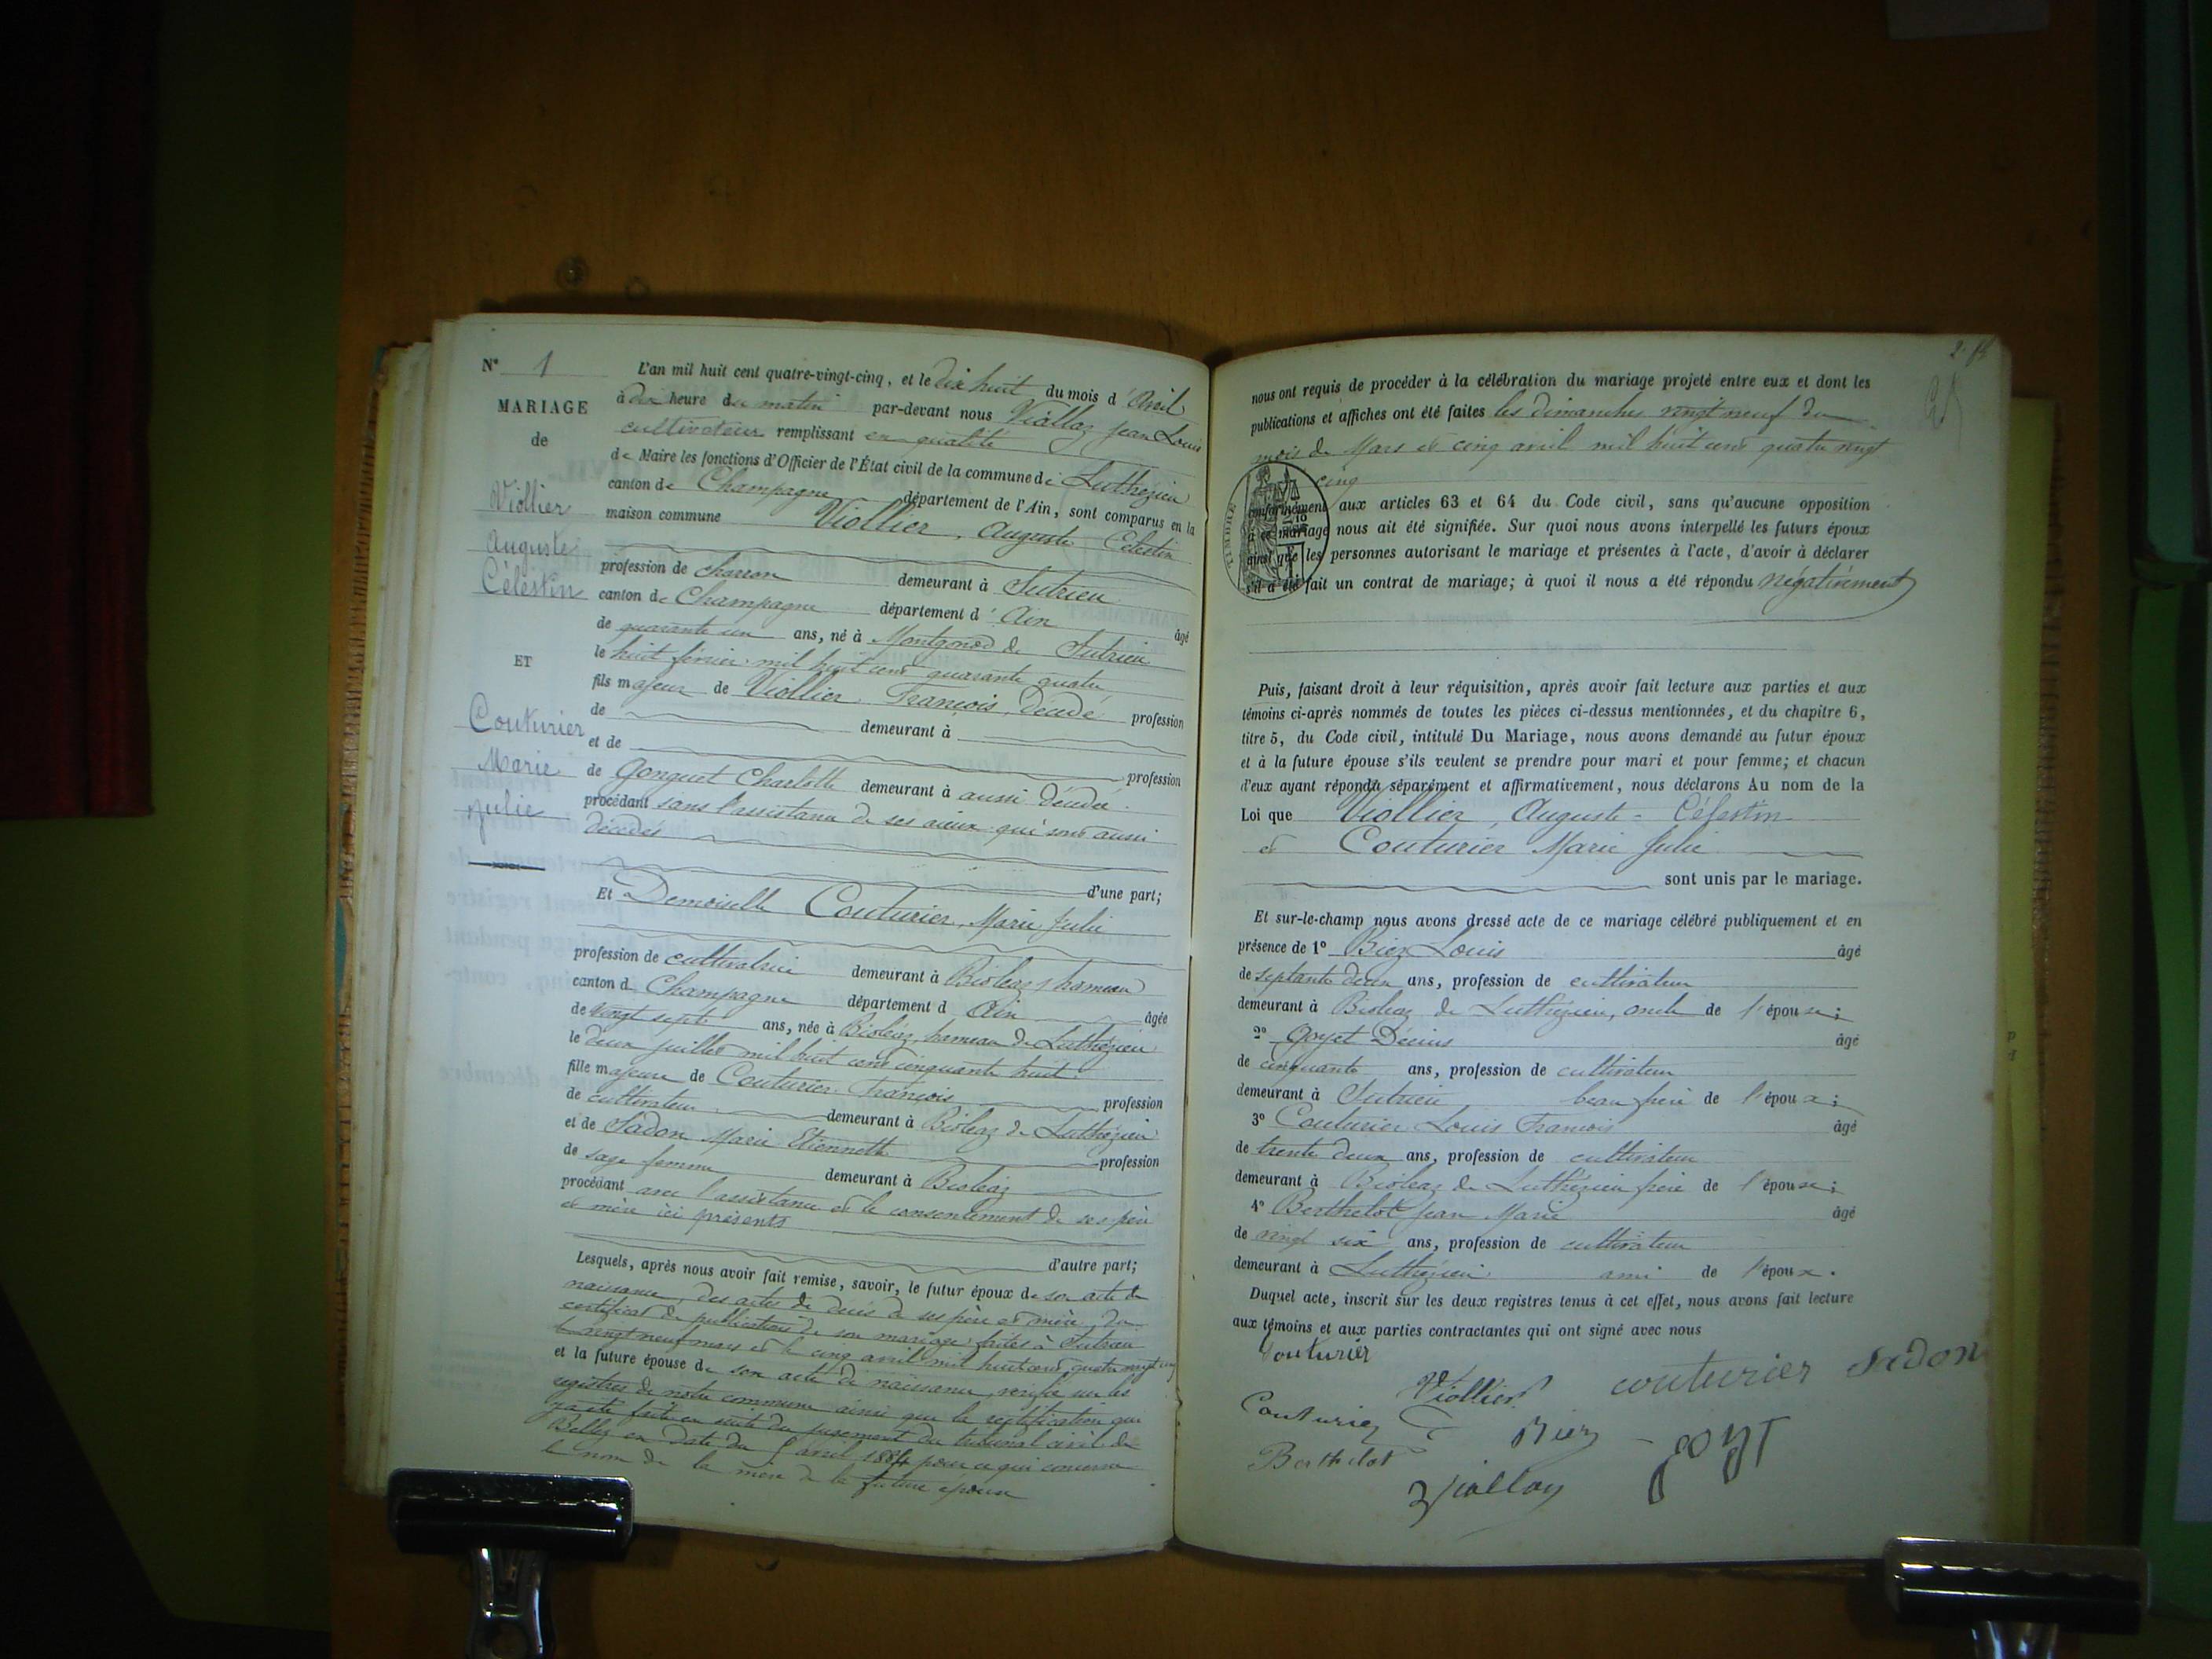 N° 1
MARIAGE
de
Viollier
Auguste
Célestin
ET
Couturier
Marie
Julie
L'an mil huit cent quatre-vingt-cinq, et le dix huit du mois d'Avril
à dix heure du matin par-devant nous Viallaz Jean Louis
cultivateur remplissant en qualité
de Maire les fonctions d'Officier de l'État civil de la commune de Luthézieu
canton de Champagne département de l'Ain, sont comparus en la
maison commune Viollier, Auguste Célestin
profession de charron demeurant à Sutrieu
canton de Champagne département d'Ain âgé
de quarante un ans, né à Montgonod de Sutrieu
le huit février mil huit cent quarante quatre
fils majeur de Viollier François, décédé profession
de demeurant à
et de profession
de Gonguet Charlotte demeurant à aussi décédée
procédant sans l'assistance de ses aïeux qui sont aussi
décédés
d'une part;
Et Demoiselle Couturier, Marie Julie
profession de cultivatrice demeurant à Bioléaz hameau
canton d. Champagne département d Ain âgée
de vingt sept ans, née à Bioléaz, hameau de Luthézieu
le deux juillet mil huit cent cinquante huit
fille majeure de Couturier François profession
de cultivateur demeurant à Bioléaz de Luthézieu
et de Sadon Marie Etiennette profession
de sage femme demeurant à Bioléaz
procédant avec l'assistance et le consentement de ses père
et mère ici présents
d'autre part;
Lesquels, après nous avoir fait remise, savoir, le futur époux de son acte de
naissance, des actes de décès de ses père et mère, du
certificat de publications de son mariage faites à Sutrieu
le vingt neuf mars et le cinq avril mil huit cent quatre vingt cinq
et la future épouse de son acte de naissance, vérifié sur les
registres de notre commune ainsi que la rectification qui
y a été faite en suite du jugement du tribunal civil de
Belley en date du avril 1884 pour ce qui concerne
le nom de la mère de la future épouse
nous ont requis de procéder à la célébration du mariage projeté entre eux et dont les
publications et affiches ont été faites les dimanches vingt neuf du
mois de Mars et cinq avril mil huit cent quatre vingt
cinq
conformément aux articles 63 et 64 du Code civil, sans qu'aucune opposition
à ce mariage nous ait été signifiée. Sur quoi nous avons interpellé les futurs époux
ainsi que les personnes autorisant le mariage et présentes à l'acte, d'avoir à déclarer
s'il a été fait un contrat de mariage; à quoi il nous a été répondu négativement
Puis, faisant droit à leur réquisition, après avoir fait lecture aux parties et aux
témoins ci-après nommés de toutes les pièces ci-dessus mentionnées, et du chapitre 6,
titre 5, du Code civil, intitulé Du Mariage, nous avons demandé au futur époux
et à la future épouse s'ils veulent se prendre pour mari et pour femme; et chacun
d'eux ayant répondu séparément et affirmativement, nous déclarons Au nom de la
Loi que Viollier, Auguste - Célestin
et Couturier Marie Julie
sont unis par le mariage.
Et sur-le-champ nous avons dressé acte de ce mariage célébré publiquement et en
présence de 1° Biez Louis âgé
de septante deux ans, profession de cultivateur
demeurant à Bioléaz de Luthézieu, oncle de l'épouse;
2° Goyet Décius âgé
de cinquante ans, profession de cultivateur
demeurant à Sutrieu beau frère de l'époux;
3° Couturier Louis François âgé
de trente deux ans, profession de cultivateur
demeurant à Bioléaz de Luthézieu frère de l'épouse;
4° Berthelot Jean Marie âgé
de vingt six ans, profession de cultivateur
demeurant à Luthézieu ami de l'époux.
Duquel acte, inscrit sur les deux registres tenus à cet effet, nous avons fait lecture
aux témoins et aux parties contractantes qui ont signé avec nous
Couturier
Viollier couturier Sadon
Couturier Biez goyet
Berthelot
Viallaz